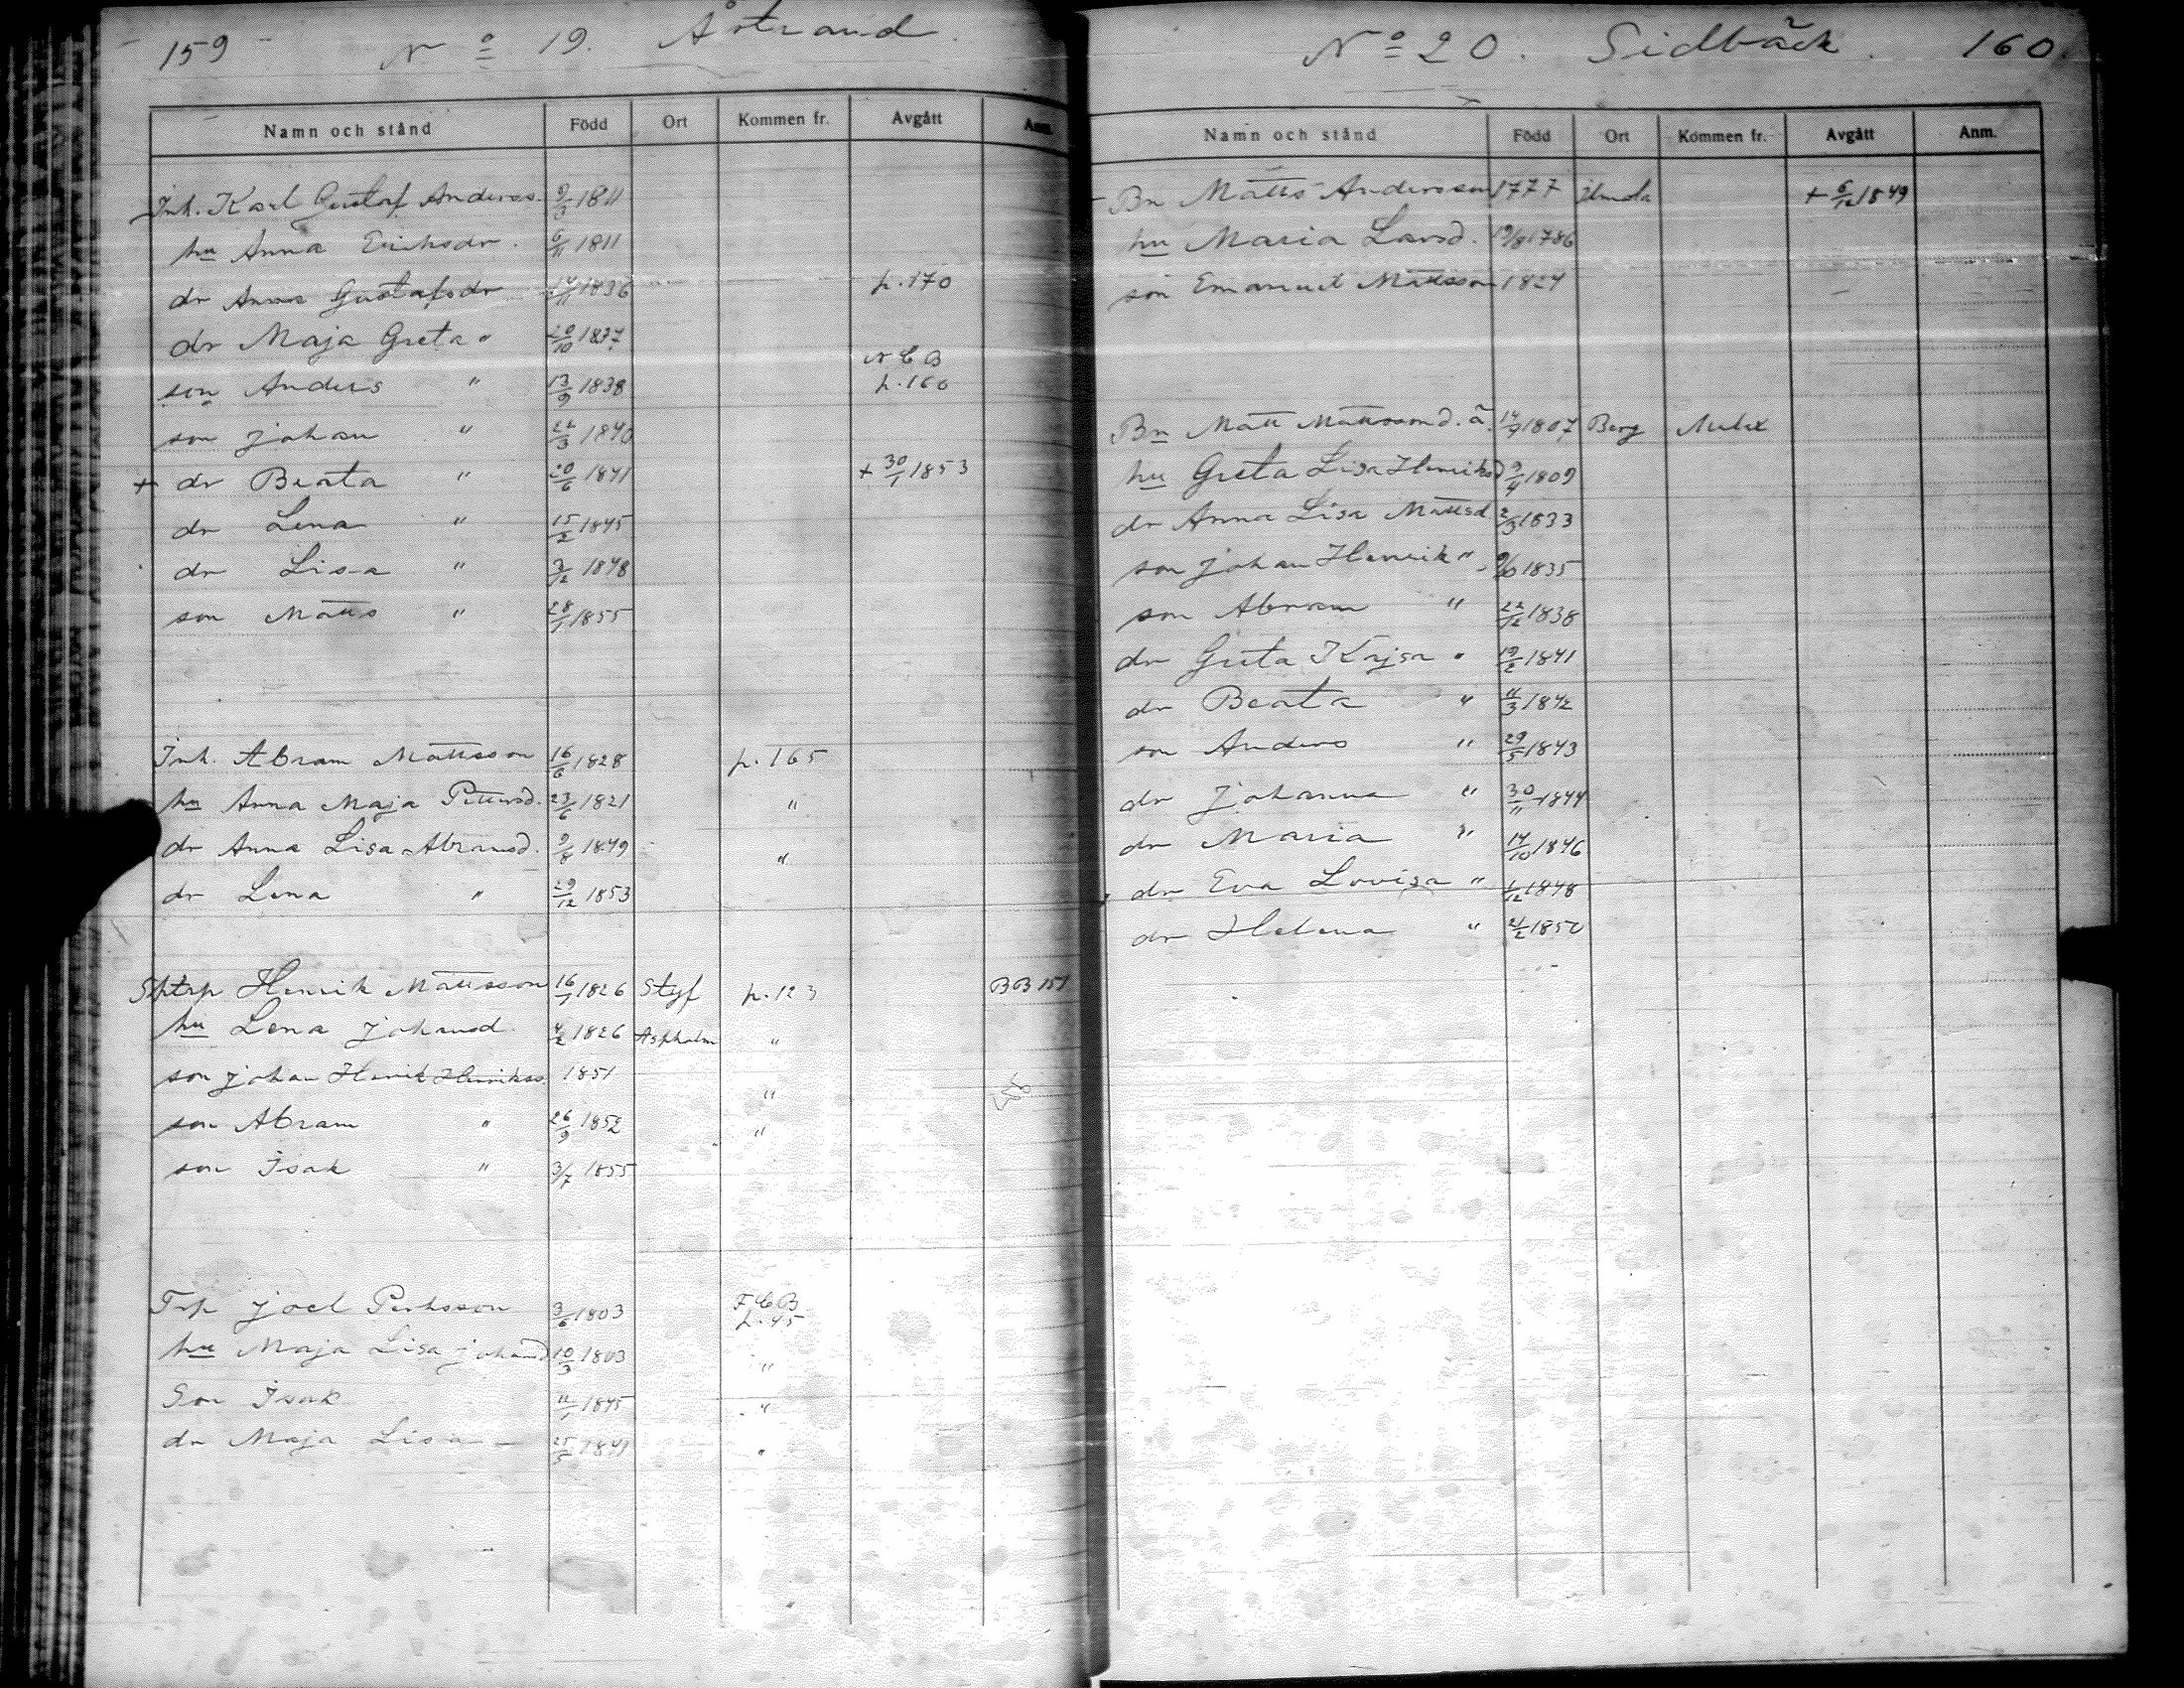 159 No 19. Åstrand.
Namn och stånd Född Ort Kommen fr. Avgått Anm.
Inh. Karl Gustaf Anderss. 9/3 1811
hu Anna Eriksdr. 6/11 1811
dr Anna Gustafsdr 14/11 1836 p.170
dr Maja Greta " 20/10 1837
N C B
son Anders " 13/9 1838 p.160
son Johan " 22/3 1840
+ dr Beata " 20/6 1841 + 30/1 1853
dr Lena " 15/2 1845
dr Lisa " 3/12 1848
son Matts " 28/1 1855
Inh. Abram Mattsson 16/6 1828 p.165
hu Anna Maja Pettersd. 23/6 1821 "
dr Anna Lisa Abramsd. 9/8 1849 "
dr Lena " 29/12 1853
Henrik Mattsson 16/1 1826 Styf p.123 BB 151
hu Lena Johansd. 4/2 1826 Aspholm "
son Johan Henrik Henrikss. 1851 "
son Abram " 26/9 1852 "
son Isak " 3/7 1855
Trp Joel 3/6 1803 F C B p.45
hu Maja Lisa Johansd 10/3 1803 "
Son Isak 11/1 1845 "
dr Maja Lisa 25/5 "
No 20. Sidbäck. 160.
Namn och stånd Född Ort Kommen fr. Avgått Anm.
Bn Matts Andersson 1777 Ilmola + 6/12 1849
hu Maria Larsd. 19/8 1786
son Emanuel Mattsson 1824
Bn Matt Mattsson d.ä. 14/9 1807 Berg Malax
hu Greta Lisa Henriksd 9/4 1809
dr Anna Lisa Mattsd 2/3 1833
son Johan Henrik " 9/10 1835
son Abram " 22/12 1838
dr Greta Kajsa " 19/2 1841
dr Beata " 11/3 1842
son Anders " 29/5 1843
dr Johanna " 30/11 1844
dr Maria " 14/10 1846
dr Eva Lovisa " 1/12 1848
dr Helena " 2/2 1850